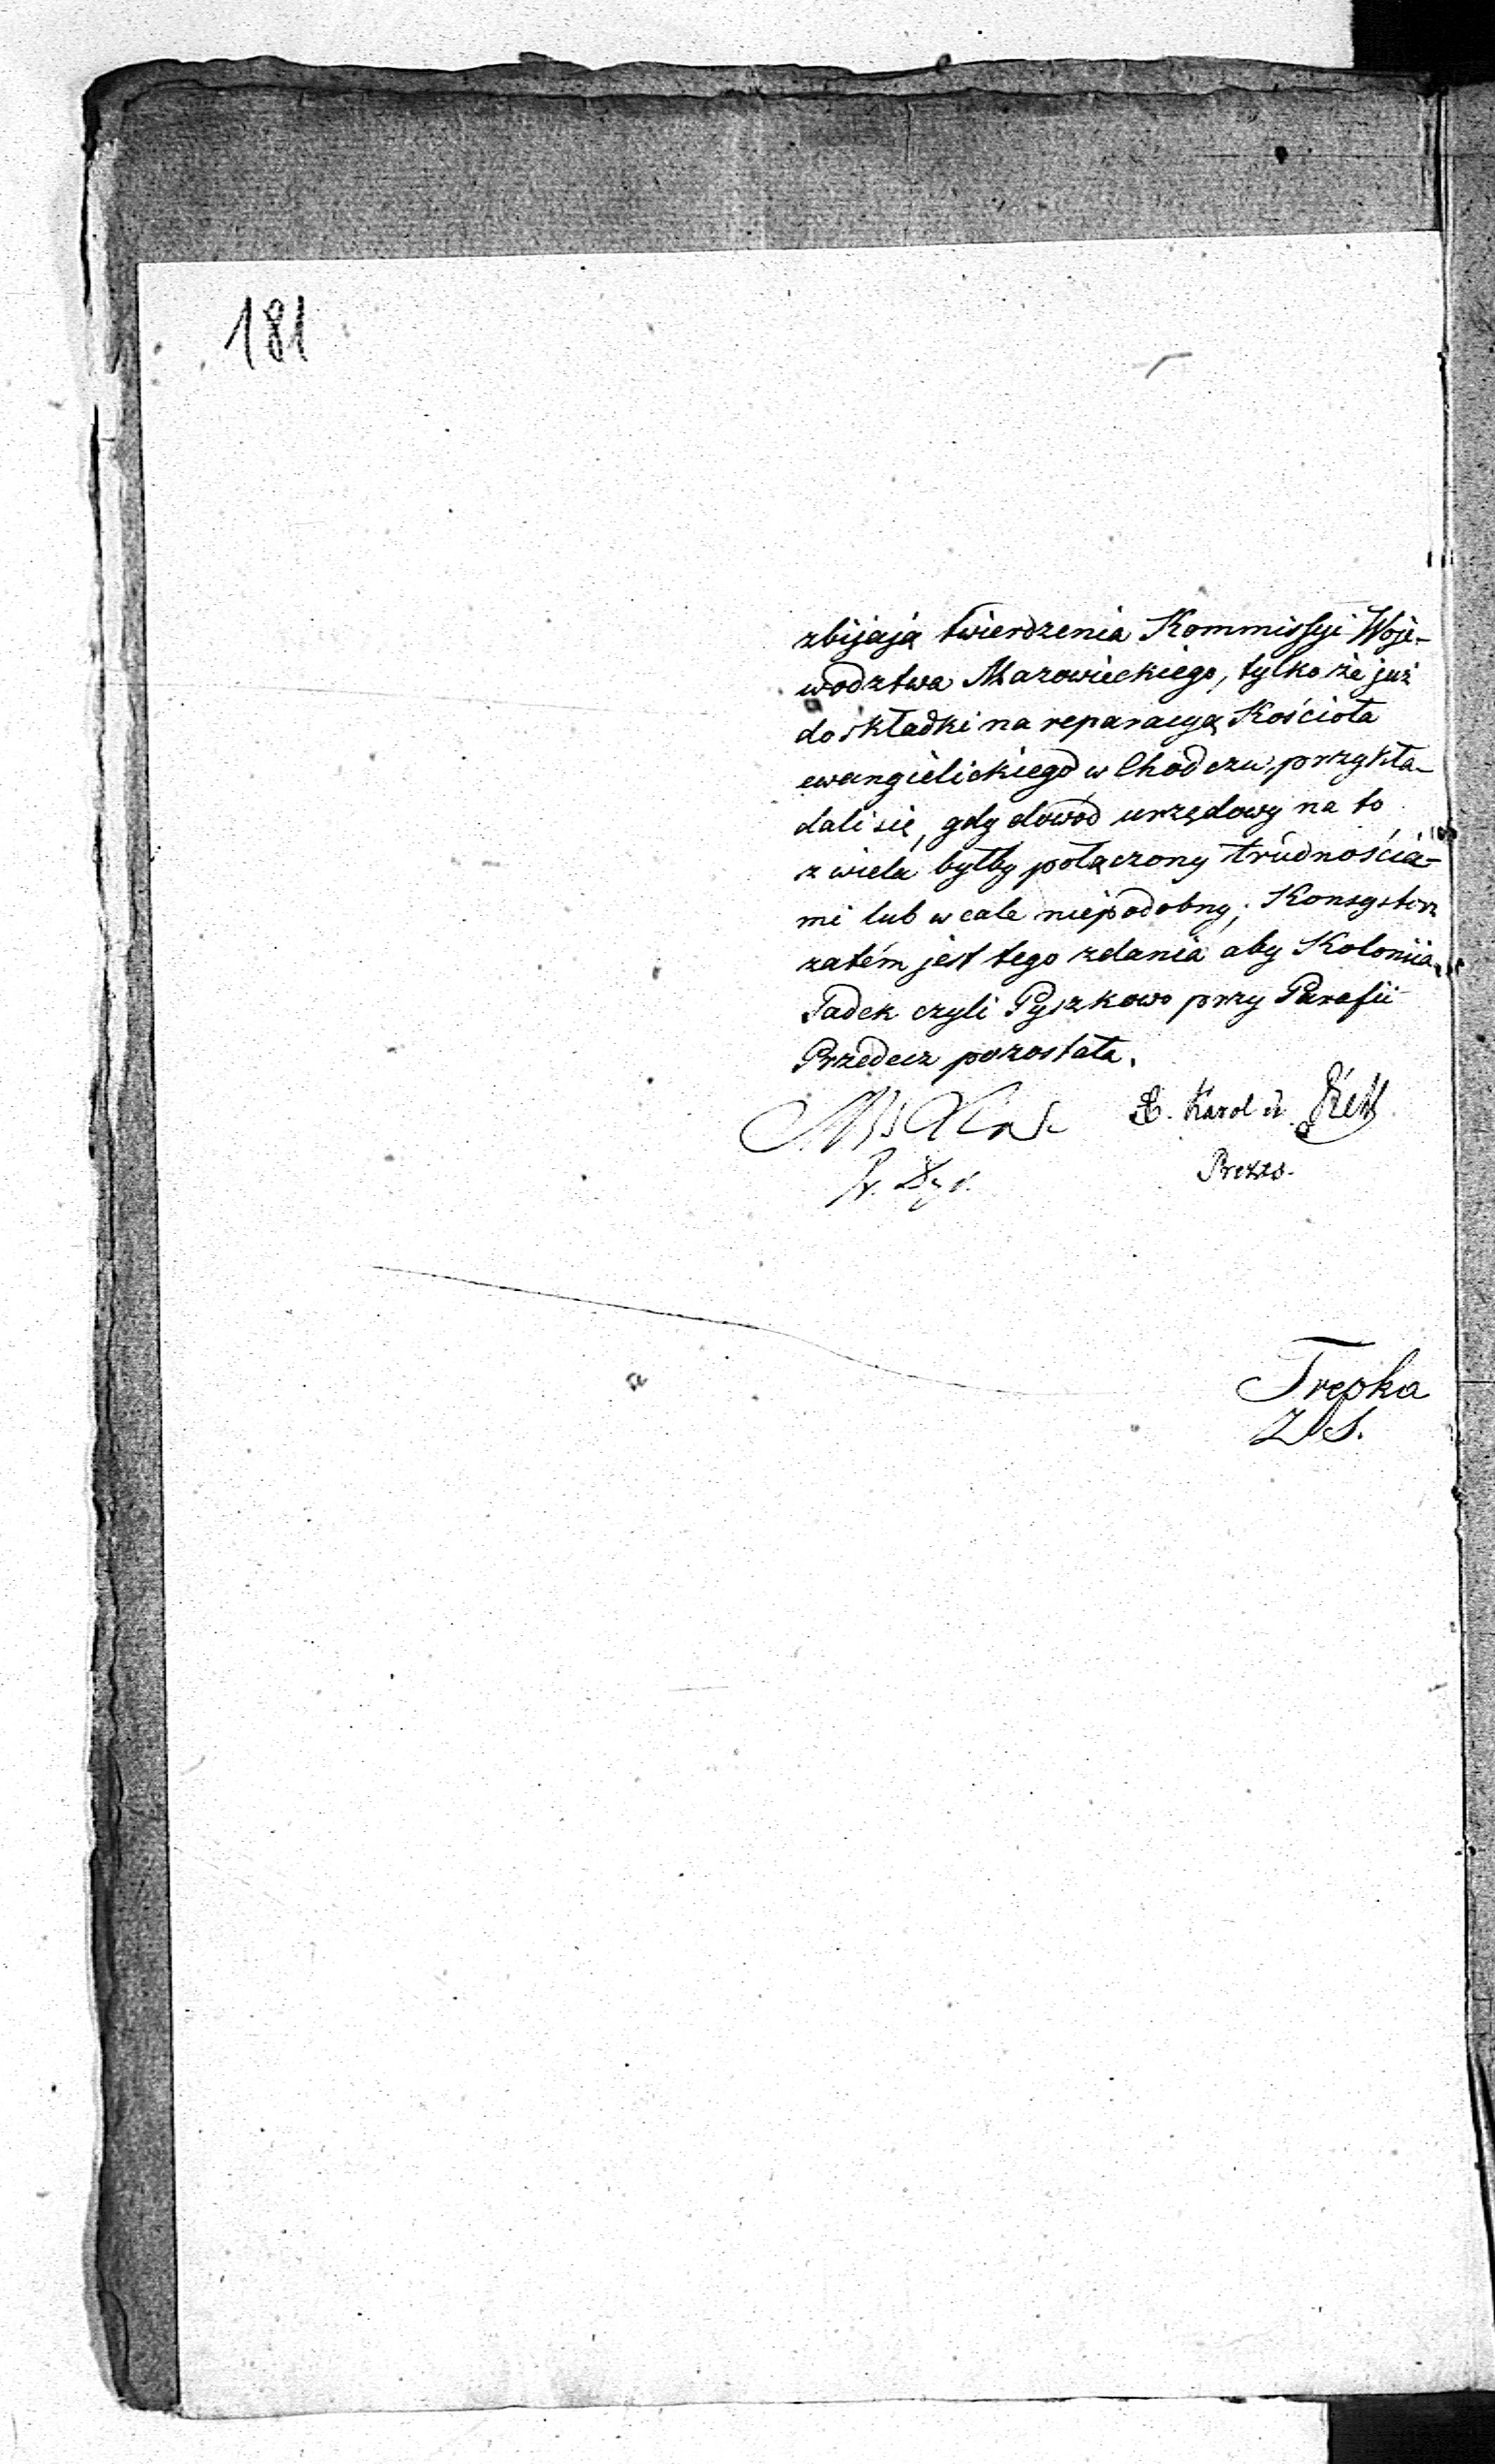 181
zbijają twierdzenia Kommissyi Woje-
wodztwa Mazowieckiego, tylko że już
do składki na reparacyą Kościoła
ewangielickiego w Chodczu, przykła-
dali się, gdy dowód urzędowy na to
z wielu byłby połączony trudnościa-
mi lub w cale niepodobny; Konsystorz
zatém jest tego zdania aby Koloniia
Sadek czyli Pyszkowo przy Parafii
Przedecz pozostała.
Karol
Prezes.
Trepka
Z S.